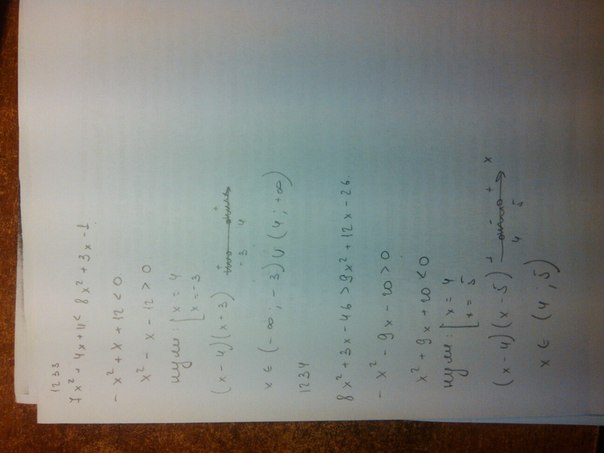 1233
7x² + 4x + 11 < 8x² + 3x - 1
- x² + x + 12 < 0
x² - x - 12 > 0
нули: [ x = 4
x = -3
(x - 4)(x - 3) + - +
-3 4
x ∈ (-∞; -3) ∪ (4; +∞)
1234
8x² + 3x - 46 > 9x² + 12x - 26
- x² - 9x - 20 > 0
x² + 9x + 20 < 0
нули: [ x = 4
x = 5
(x - 4)(x - 5) + - + x
4 5
x ∈ (4; 5)